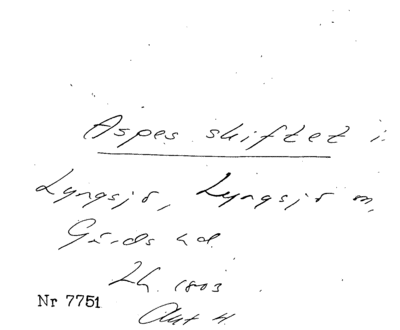 Aspes skiftet i
Lyngsjö, Lyngsjö sn,
Gärds hd.
Lh. 1803
Nr 7751
Akt 4.